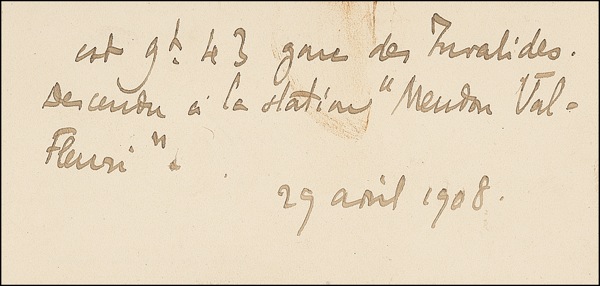 est 9h. 43 gare des Invalides.
Descendre à la station "Meudon Val-
Fleuri".
29 avril 1908.